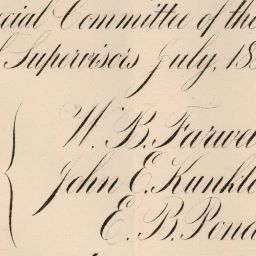 cial Committee of the
Supervisors July, 188
W. B. Farwe
John E. Kunkle
E. B. Pond